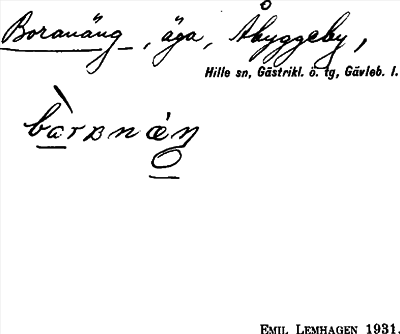 Boranäng, äga, Åbyggeby,
Hille sn, Gästrikl. ö. tg, Gävleb. l.
bàrᴀnǽn
EMIL LEMHAGEN 1931.